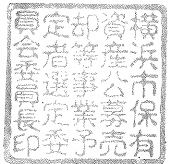 横浜市保有
資産公募売
却等事業予
定者選定委
員会委員長印